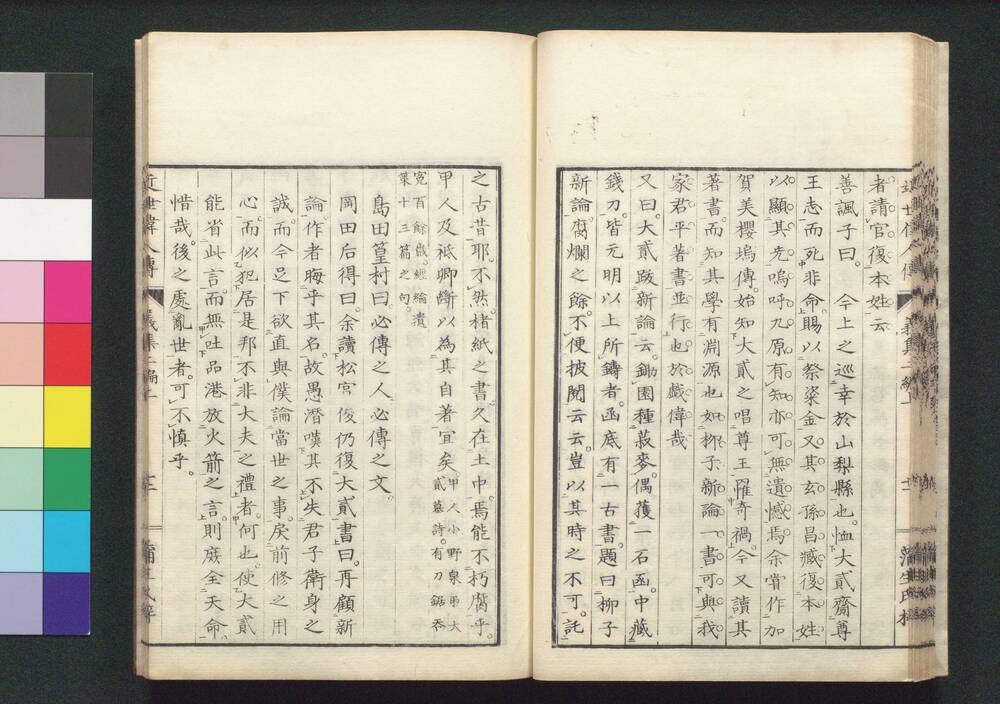 者請官復本姓云
善諷子曰。　今上之巡幸於山梨縣也。恤大貳齋尊
王志而死非命賜以祭粢金又其玄孫昌臧復本姓
以顯其先嗚呼九原有知亦可無遺憾焉余嘗作加
賀美櫻塢傳始知大貳之唱尊王罹奇禍今又讀其
著書而知其學有淵源也如柳子新論一書可與我
家君平著書並行也於戲偉哉
又曰大貳跋新論云鋤園種菽麥偶獲一石函中藏
錢刀皆元明以上所鑄者函底有一古書題曰柳子
新論腐爛之餘不便披閱云云豈以其時之不可託
之古昔耶不然楮紙之書久在土中焉能不朽腐乎。
甲人及祗卿斷以為其自著宜矣甲人小野泉弔大貳墓詩。有刀鋸忝
冤百餘歲經綸遺策十三篇之句。
島田篁村曰必傳之人必傳之文
岡田后得曰余讀松宮俊仍復大貳書曰再顧新
論作者晦乎其名故愚潛嘆其不失君子衛身之
誠而今足下欲直與僕論當世之事戾前修之用
心而似犯居是邦不非大夫之禮者何也使大貳
能省此言而無吐品港放火箭之言則庶全天命
惜哉後之處亂世者可不慎乎。
近世偉人傳　義集二編上　廿二　蒲生氏梓